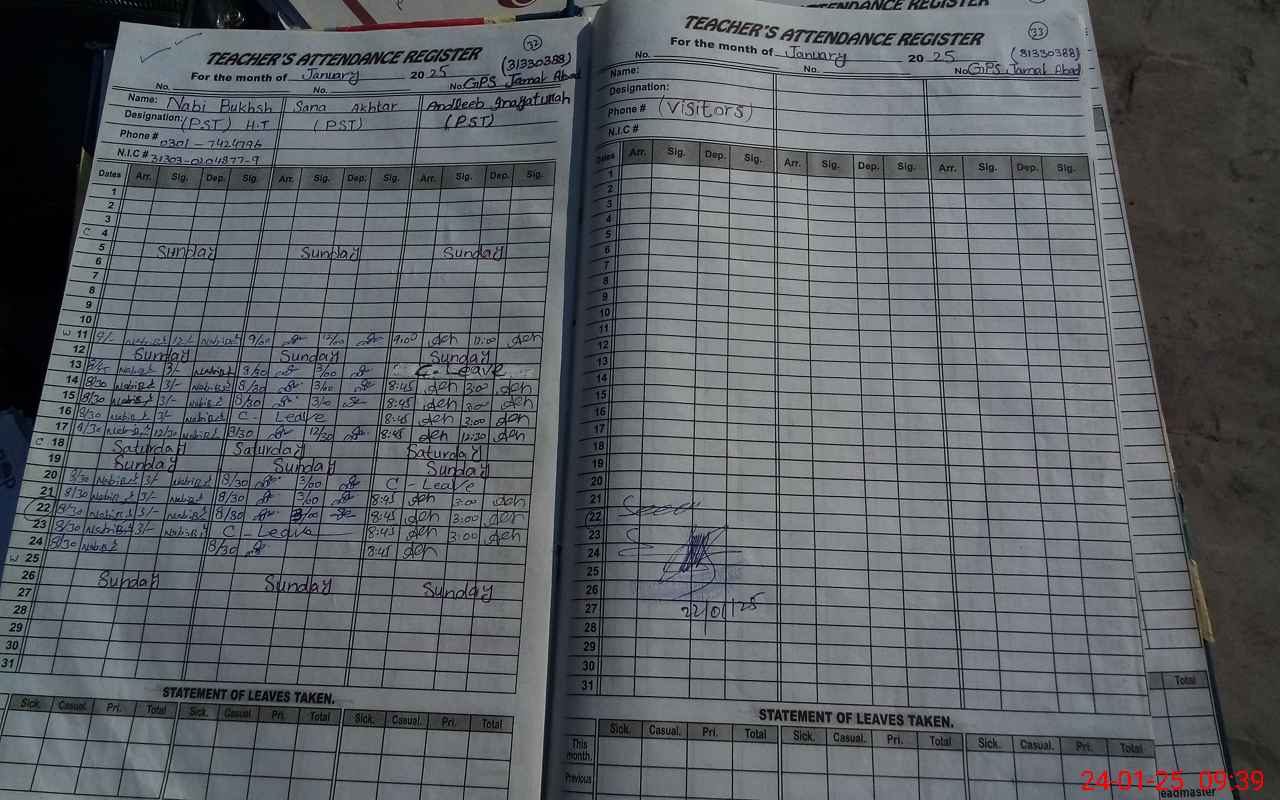 TEACHER'S ATTENDANCE REGISTER
32
(31330388)
For the month of January 2025
No. No. No. GPS Jamal Abad
Name: Nabi Bukhsh Sana Akhtar Andleeb Inayatullah
Designation: (PST) H.T (PST) (PST)
Phone # 0301-7424796
N.I.C # 31303-0204877-9
Dates Arr. Sig. Dep. Sig. Arr. Sig. Dep. Sig. Arr. Sig. Dep. Sig.
1
2
3
C 4
5 Sunday Sunday Sunday
6
7
8
9
10
W 11 9/- 12/- 9/00 12/00 9:00 12:00
12 Sunday Sunday Sunday
13 3/- 8/30 3/00 C-Leave
14 8/30 3/- 8/30 3/00 8:45 3:00
15 8/30 3/- 8/30 3/00 8:45 3:00
16 8/30 3/- C-Leave 8:45 3:00
17 8/30 12/30 8/30 12/30 8:45 12:30
C 18 Saturday Saturday Saturday
19 Sunday Sunday Sunday
20 8/30 3/- 8/30 3/00 C-Leave
21 8/30 3/- 8/30 3/00 8:45 3:00
22 8/30 3/- 8/30 3/00 8:45 3:00
23 8/30 3/- C-Leave 8:45 3:00
24 8/30 8/30 8:45
W 25
26 Sunday Sunday Sunday
27
28
29
30
31
STATEMENT OF LEAVES TAKEN.
Sick. Casual. Pri. Total Sick. Casual Pri. Total Sick. Casual. Pri. Total
ATTENDANCE REGISTER
TEACHER'S ATTENDANCE REGISTER
33
(31330388)
For the month of January 2025
No. No. No. GPS Jamal Abad
Name:
Designation:
Phone # (Visitors)
N.I.C #
Dates Arr. Sig. Dep. Sig. Arr. Sig. Dep. Sig. Arr. Sig. Dep. Sig.
1
2
3
4
5
6
7
8
9
10
11
12
13
14
15
16
17
18
19
20
21
22
23
24
25
26
27 22/01/25
28
29
30
31
STATEMENT OF LEAVES TAKEN.
Sick. Casual. Pri. Total Sick. Casual. Pri. Total Sick. Casual. Pri. Total
This month.
Previous
Total
eadmaster
24-01-25 09:39